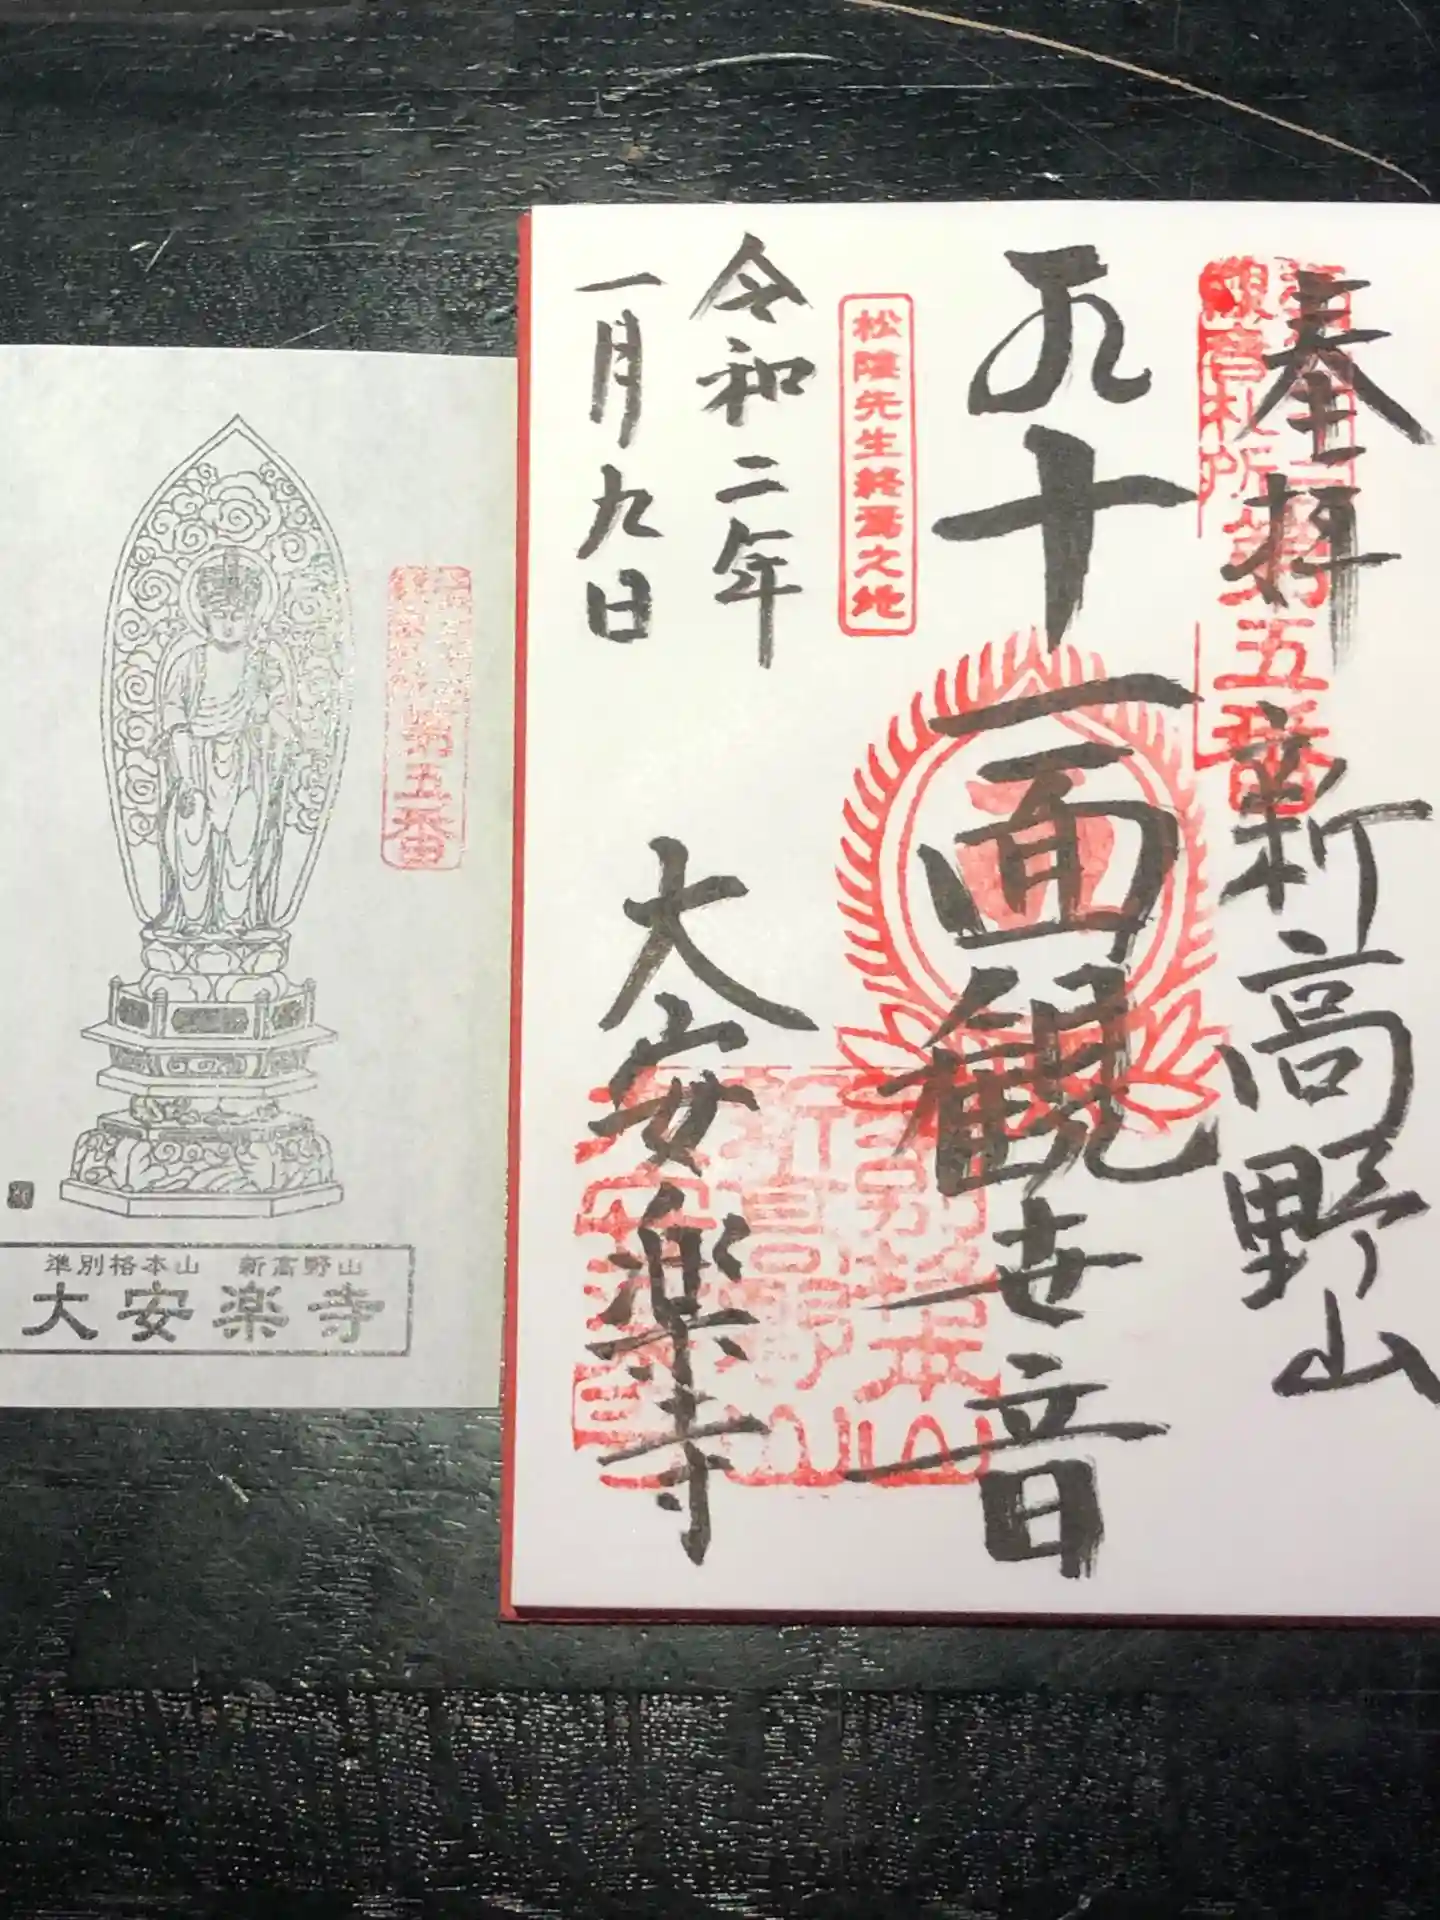 奉拝
新高野山
観音札所
第五番
十一面観世音
松陰先生終焉之地
令和二年
一月九日
大安楽寺
第五番
準別格本山 新高野山
大安楽寺